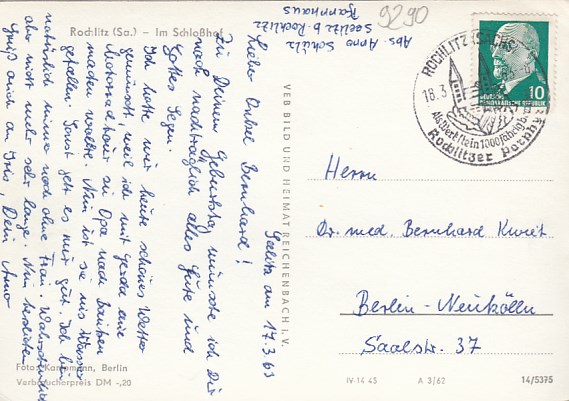 Rochlitz (Sa.) – Im Schloßhof
Abs. Arno Schulz
Seelitz b. Rochlitz
Pfarrhaus
9290
Seelitz am 17.3.63
Lieber Onkel Bernhard!
Zu Deinem Geburtstag wünsche ich Dir
noch nachträglich alles Gute und
Gottes Segen.
Ich hatte mir heute schönes Wetter
gewünscht, weil ich mit Gerda eine
Motorradtour zu Opa nach Bautzen
machen wollte. Nun ist sie ins Wasser
gefallen. Sonst geht es mir gut. Ich bin
natürlich immer noch ohne Frau. Wahrscheinlich
aber nicht mehr sehr lange. Nun
Gruß auch an Iris, Dein Arno
Foto: Kampmann, Berlin
Verbraucherpreis DM -,20
VEB BILD UND HEIMAT REICHENBACH I. V.
ROCHLITZ (SACHS)
18.3
1000
Rochlitzer Porphyr
10
DEUTSCHE
DEMOKRATISCHE REPUBLIK
Herrn
Dr. med. Bernhard Kweit
Berlin-Neukölln
Saalstr. 37
IV-14 45
A 3/62
14/5375